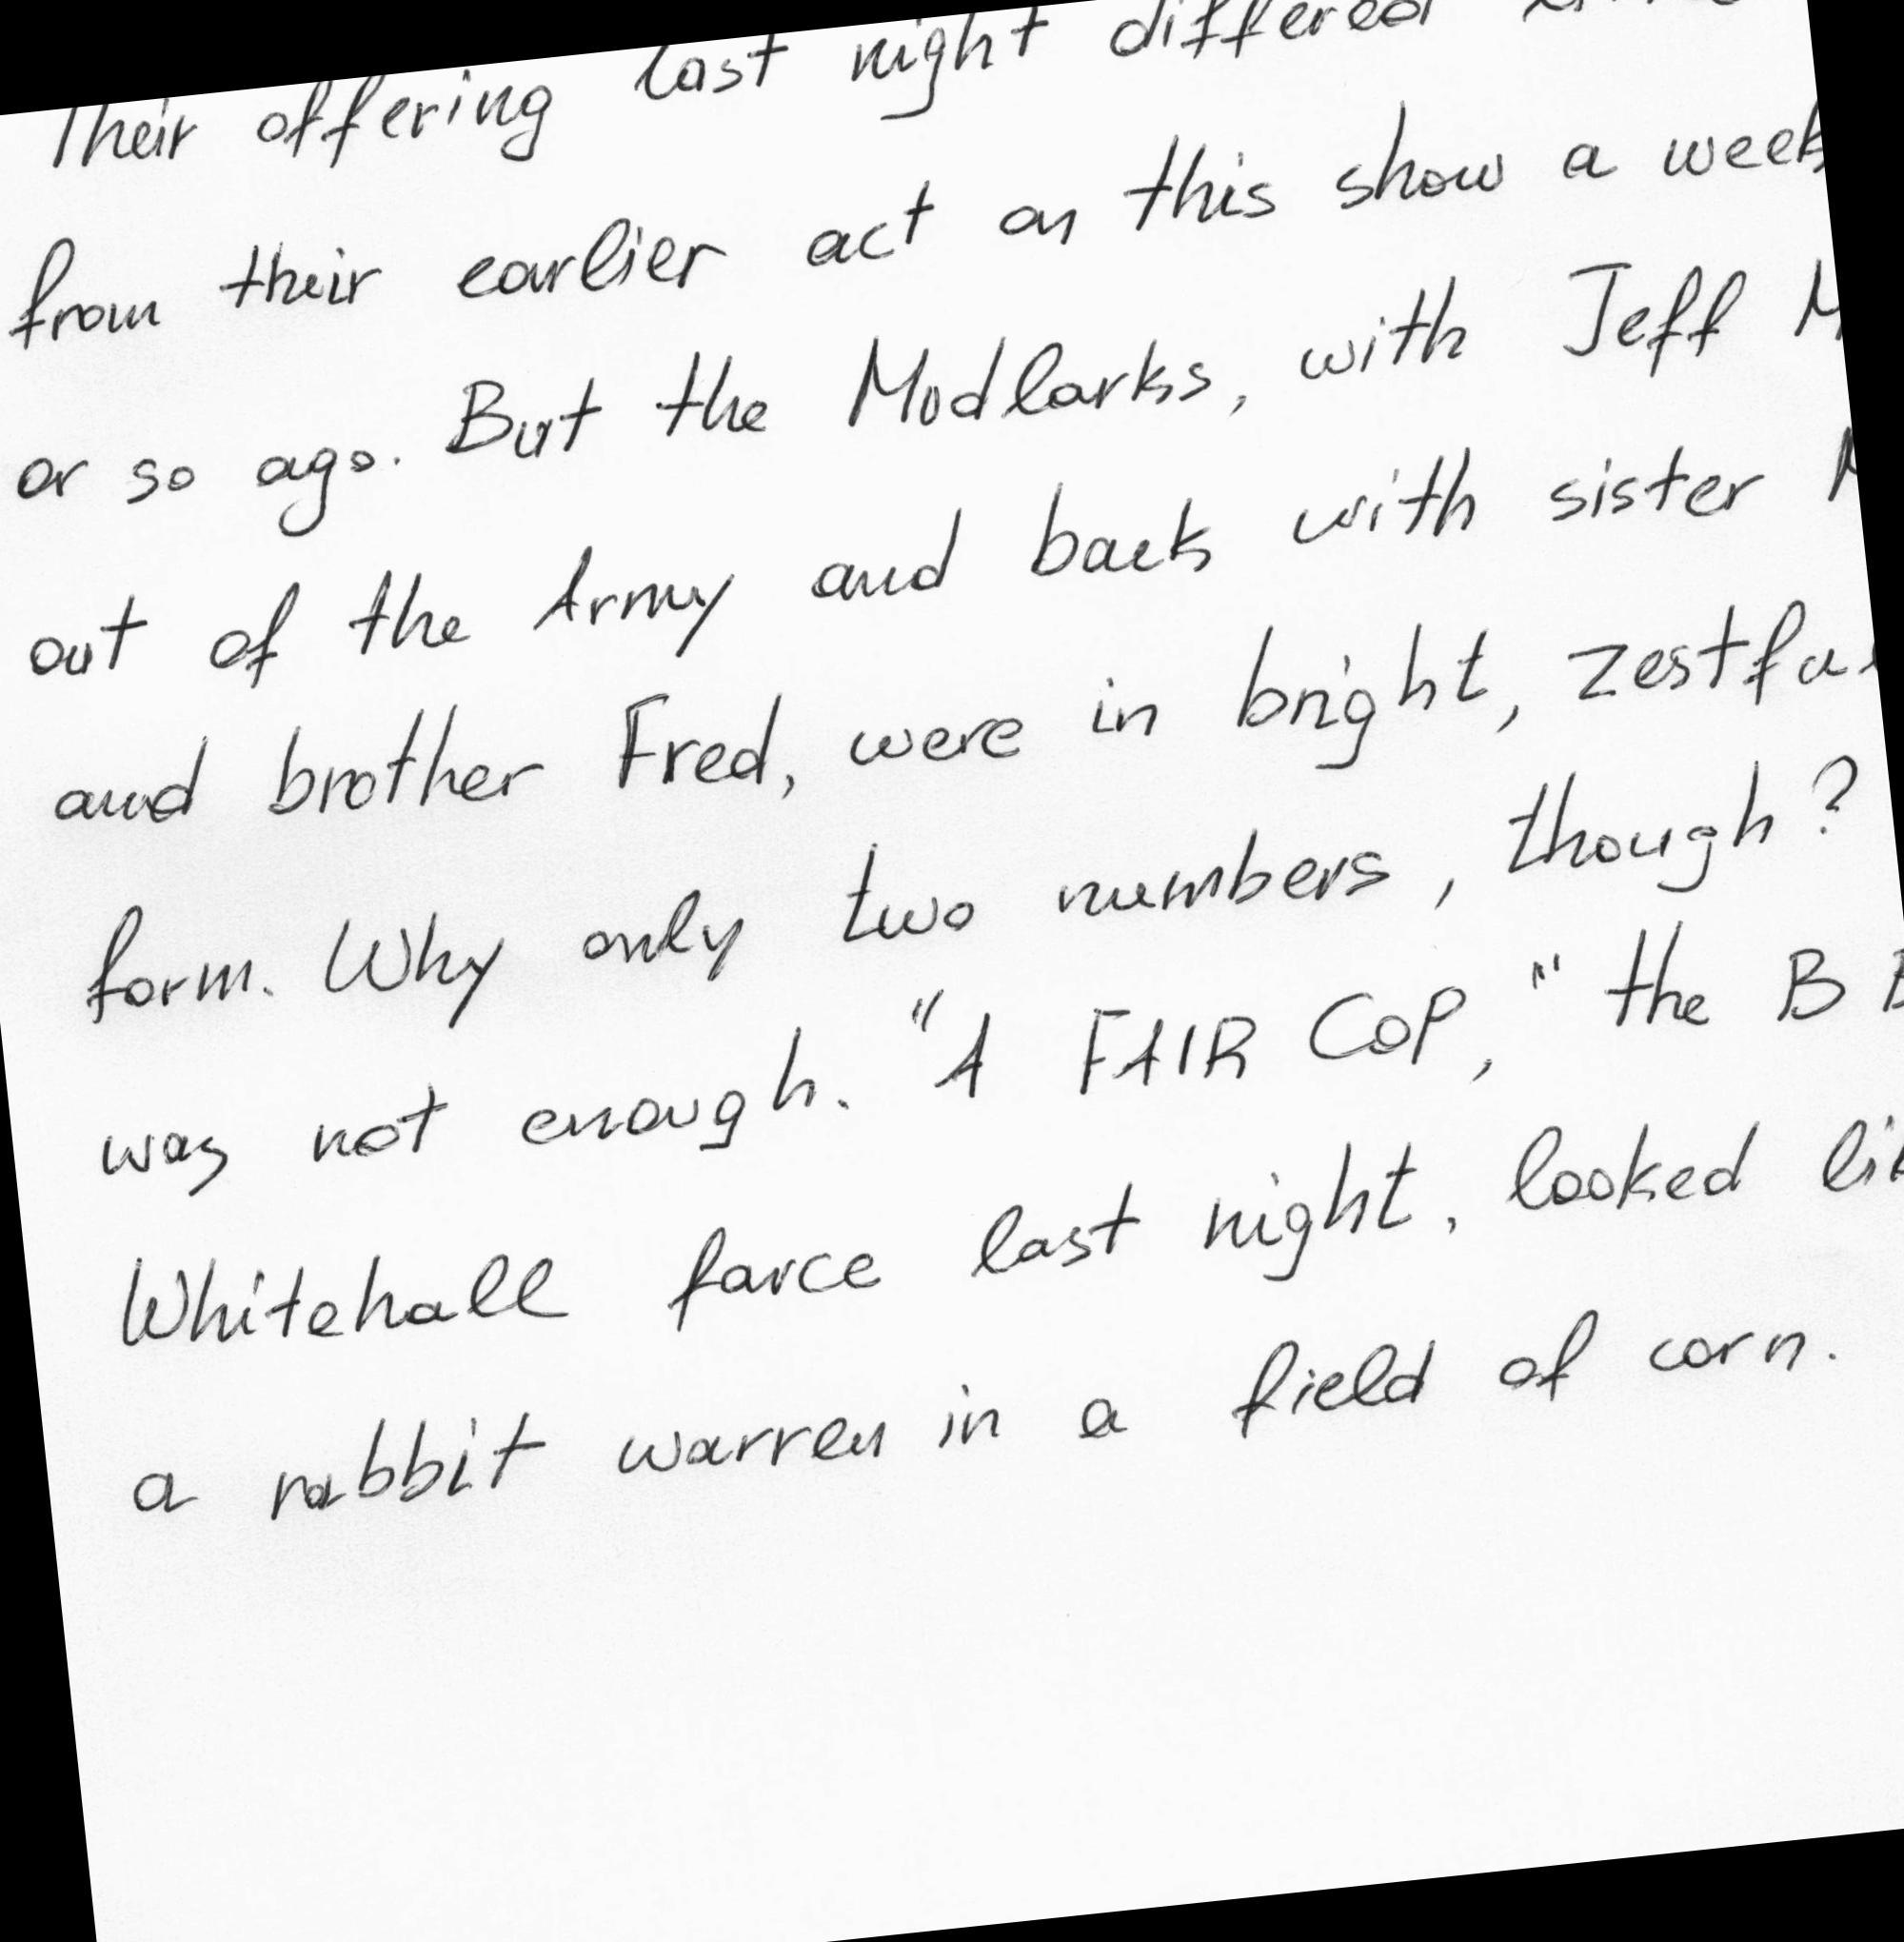 Their offering last night differed
from their earlier act on this show a week
or so ago. But the Modlarks, with Jeff
out of the Army and back with sister
and brother Fred, were in bright, zestful
form. Why only two numbers, though?
was not enough. "A FAIR COP," the B
Whitehall farce last night, looked
a rabbit warren in a field of corn.